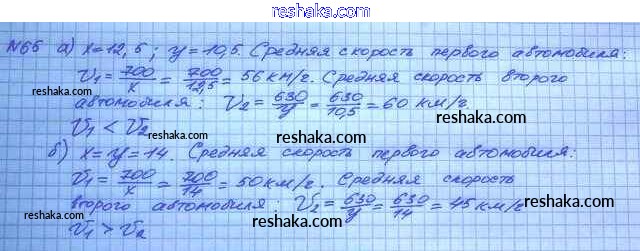 reshaka.com
№65 а) x=12,5; y=10,5. Средняя скорость первого автомобиля:
V₁ = 700/x = 700/12,5 = 56 км/г. Средняя скорость второго
reshaka.com
автомобиля: V₂ = 630/y = 630/10,5 = 60 км/г.
reshaka.com
V₁ < V₂
reshaka.com
б) x=y=14. Средняя скорость первого автомобиля:
reshaka.com
V₁ = 700/x = 700/14 = 50 км/г. Средняя скорость
reshaka.com
второго автомобиля: V₂ = 630/y = 630/14 = 45 км/г
reshaka.com
reshaka.com
V₁ > V₂
reshaka.com